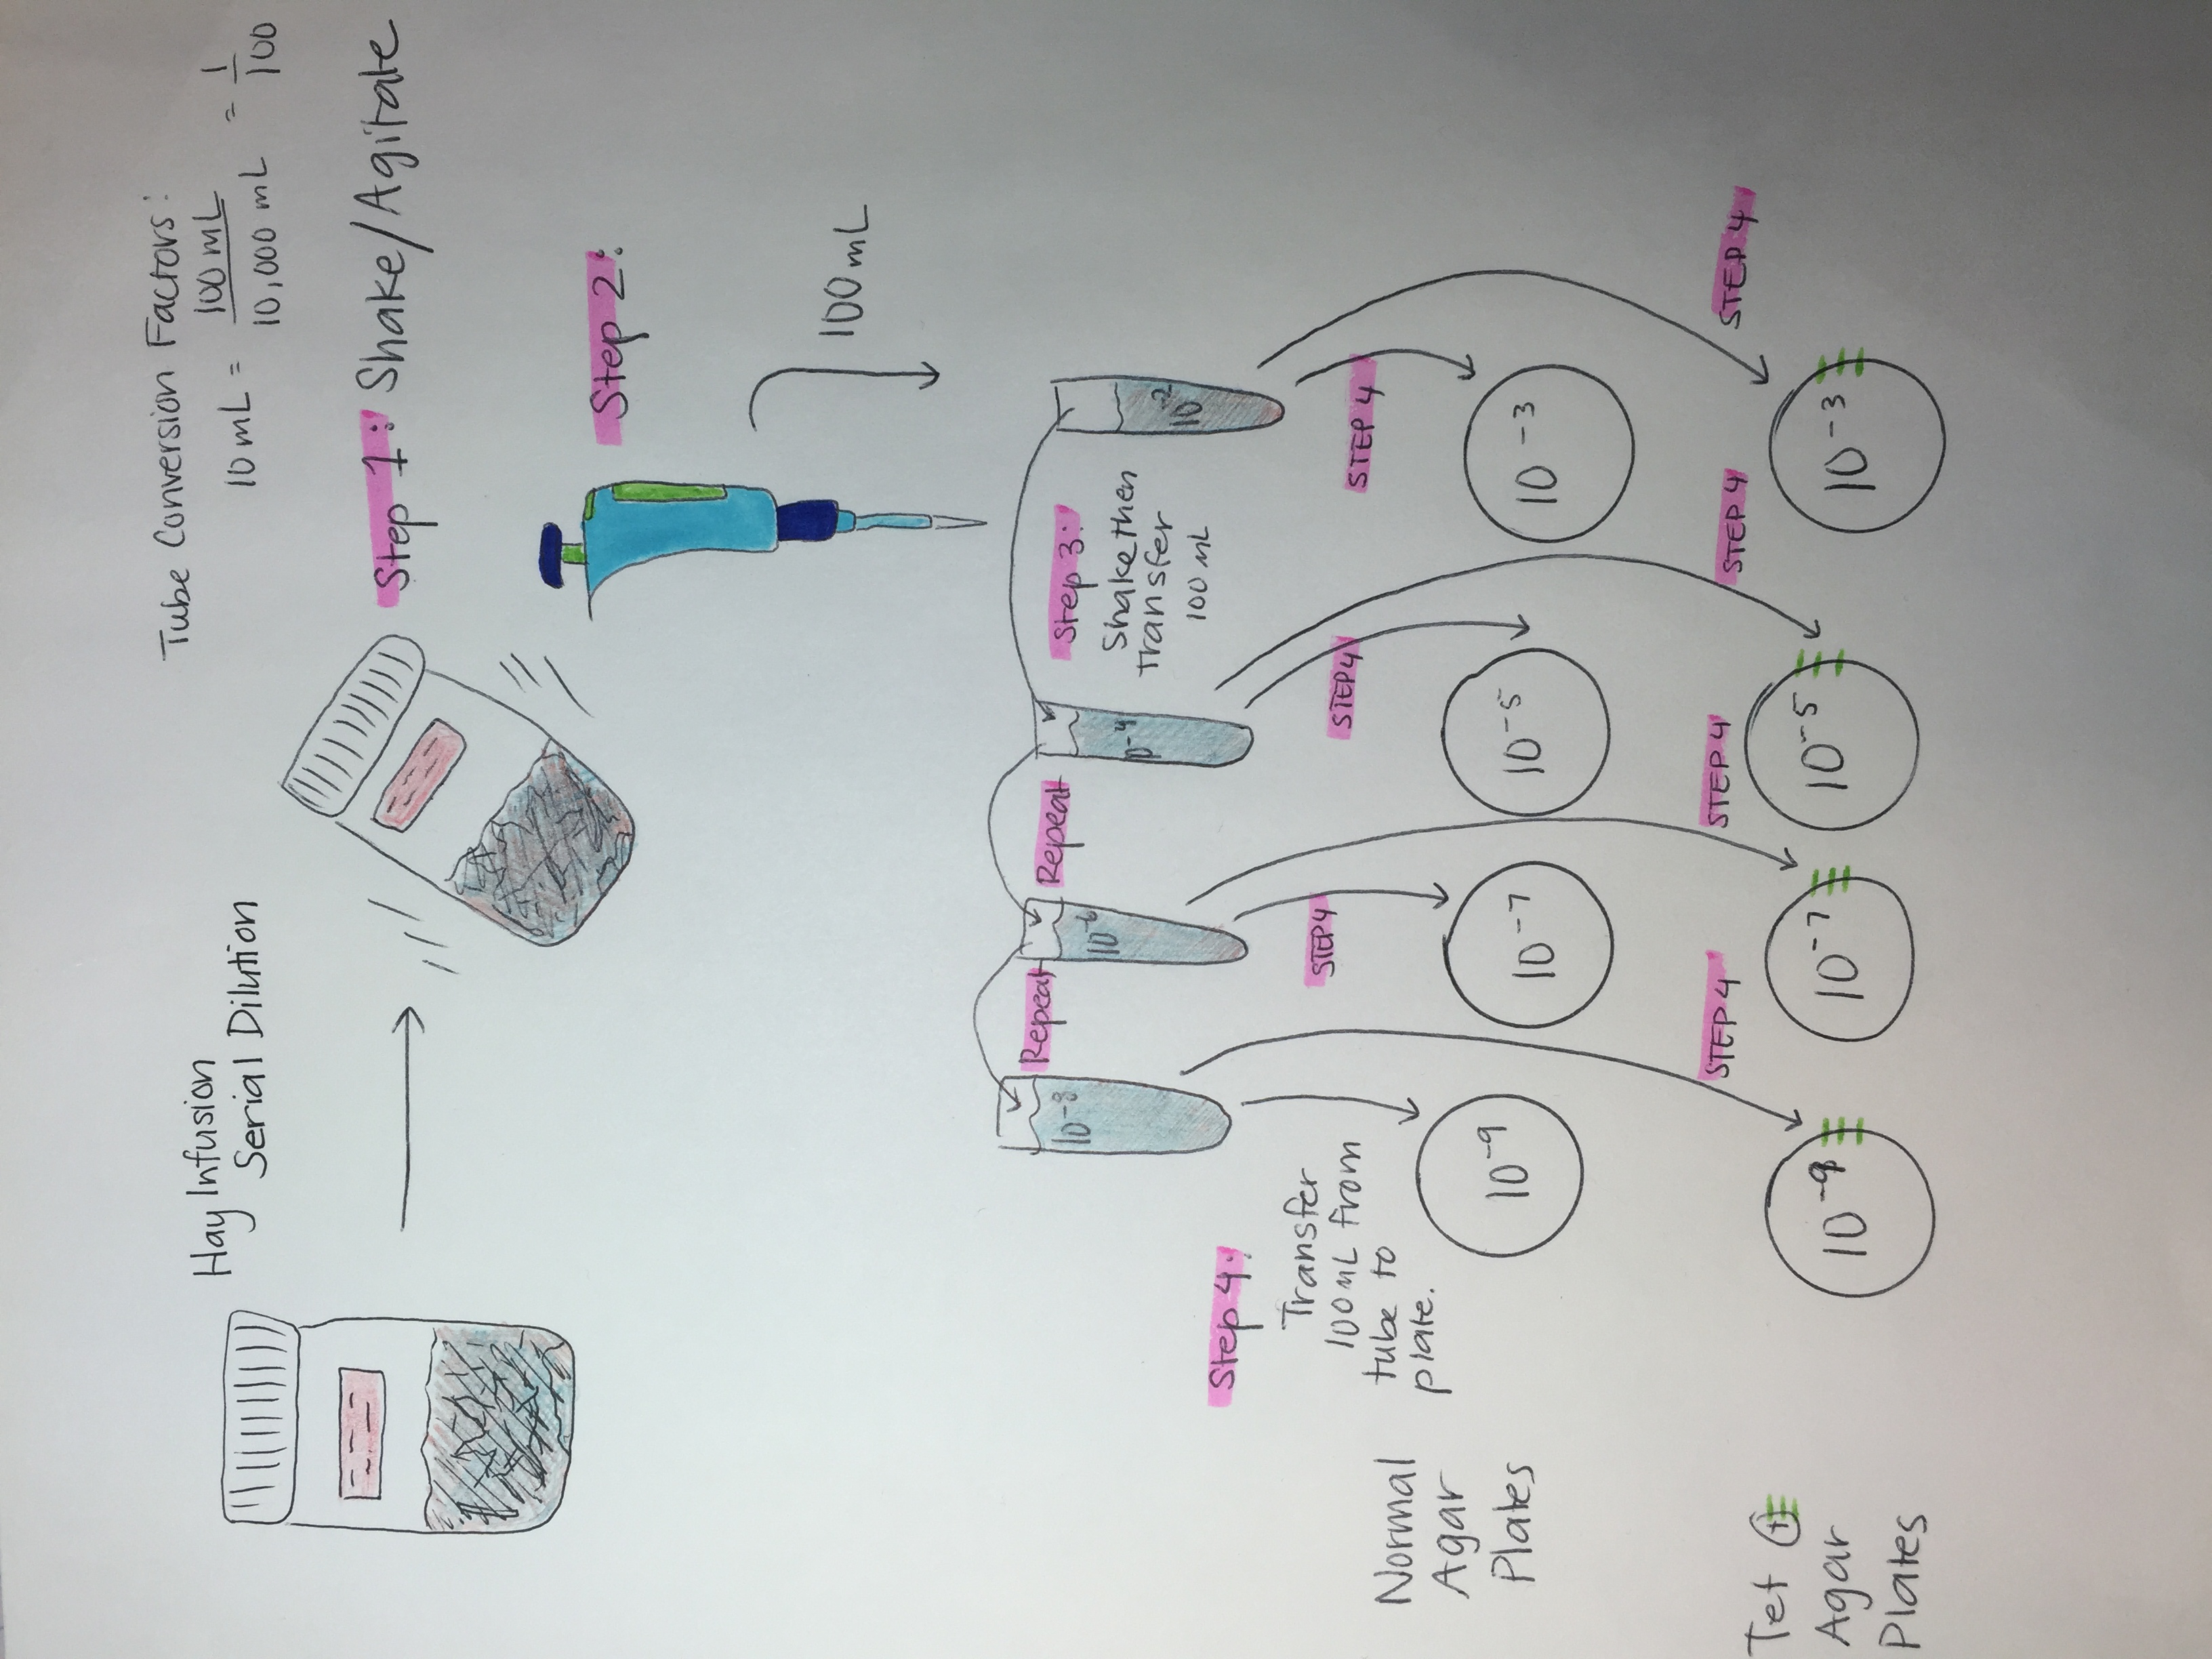 Hay Infusion
Serial Dilution
Tube Conversion Factors:
10 mL = 100 mL / 10,000 mL = 1/100
Step 1: Shake/Agitate
Step 2:
100 mL
Repeat
Repeat
Step 3:
Shake then
transfer
100 mL
10-8
10-6
10-4
10-2
Step 4:
Transfer
100 mL from
tube to
plate.
STEP 4
STEP 4
STEP 4
Normal
Agar
Plates
10-9
10-7
10-5
10-3
STEP 4
STEP 4
STEP 4
STEP 4
Tet +
Agar
Plates
10-9
10-7
10-5
10-3